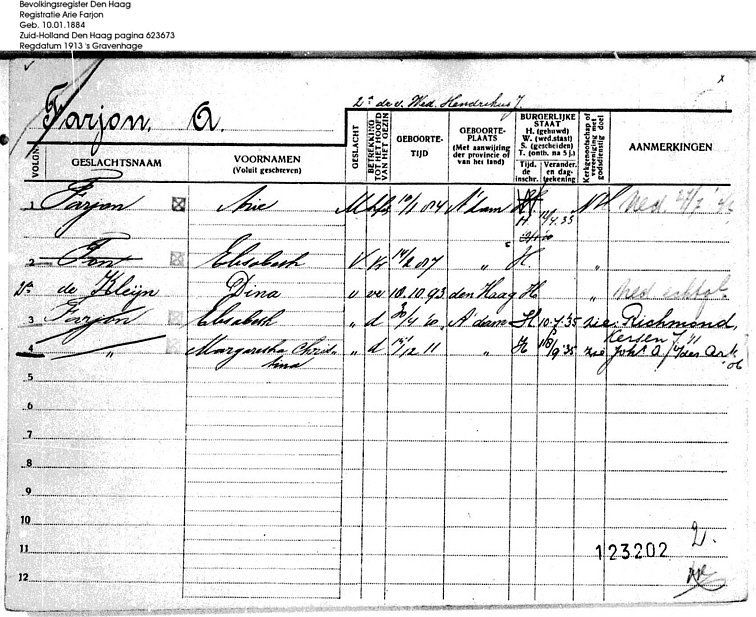 Bevolkingsregister Den Haag
Registratie Arie Farjon
Geb. 10.01.1884
Zuid-Holland Den Haag pagina 623673
Regdatum 1913 's Gravenhage
Farjon, A. 2e de v. Wed. Hendrikus J. x
VOLGNo. GESLACHTSNAAM VOORNAMEN (Voluit geschreven) GESLACHT BETREKKING TOT HET HOOFD VAN HET GEZIN GEBOORTE-TIJD GEBOORTE-PLAATS (Met aanwijzing der provincie of van het land) BURGERLIJKE STAAT H. (gehuwd) W. (wed.staat) S. (gescheiden) T. (onth. na S j.) Tijd. de inschr. Verander. en dag-teekening Kerkgenootschap of vereeniging met godsdienstig doel AANMERKINGEN
1 Farjon Arie M hfd 10/1 84 A'dam H. NH Ned.
2 Pon Elisabeth V vr 14/2 87 " H "
2a de Kleijn Dina v vr 10.10.93 den Haag H " Ned
3 Farjon Elisabeth " d A'dam H 10-7-'35 zie: Richmond,
Kersen J
4 " Margaretha Christina " d 15/12 11 " H zie Joh. A. v/der Ark
06
5
6
7
8
9
10
11 123202 2.
12